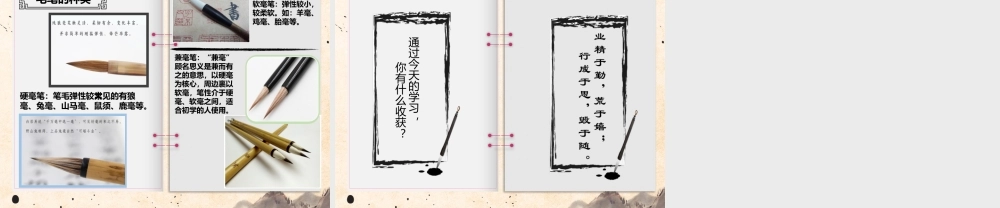 毛笔的种类
硬毫笔：笔毛弹性较常见的有狼
毫、兔毫、山马毫、鼠须、鹿毫等。
软毫笔：弹性较小，
较柔软。如：羊毫、
鸡毫、胎毫等。
兼毫笔：“兼毫”
顾名思义是兼而有
之的意思，以硬毫
为核心，周边裹以
软毫，笔性介于硬
毫、软毫之间，适
合初学的人使用。
通过今天的学习，
你有什么收获？
业精于勤，荒于嬉；
行成于思，毁于随。